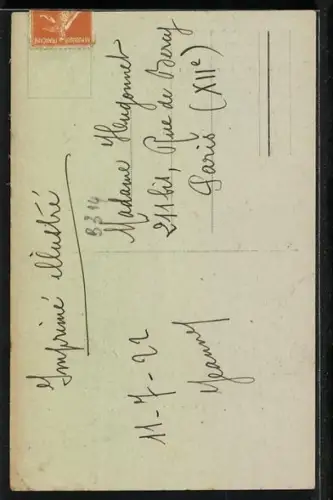 Imprimé illustré
11-7-22
B314
Madame Hugonnet
211 bis, Rue de Bercy
Paris (XIIe)